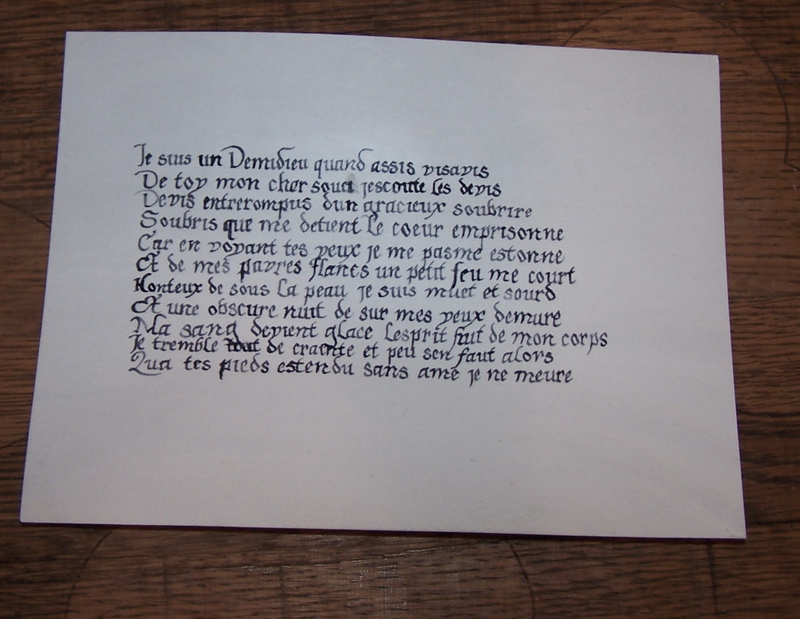 Je suis un Demidieu quand assis visavis
De toy mon cher souci jescoute les devis
Devis entrerompus dun gracieux soubrire
Soubris que me detient le coeur emprisonne
Car en voyant tes yeux je me pasme estonne
Et de mes pavres flancts un petit feu me court
Honteux de sous la peau je suis muet et sourd
Et une obscure nuit de sur mes yeux demure
Ma sang devient glace lesprit fuit de mon corps
Je tremble tout de crainte et peu sen faut alors
Qua tes pieds estendu sans ame je ne meure